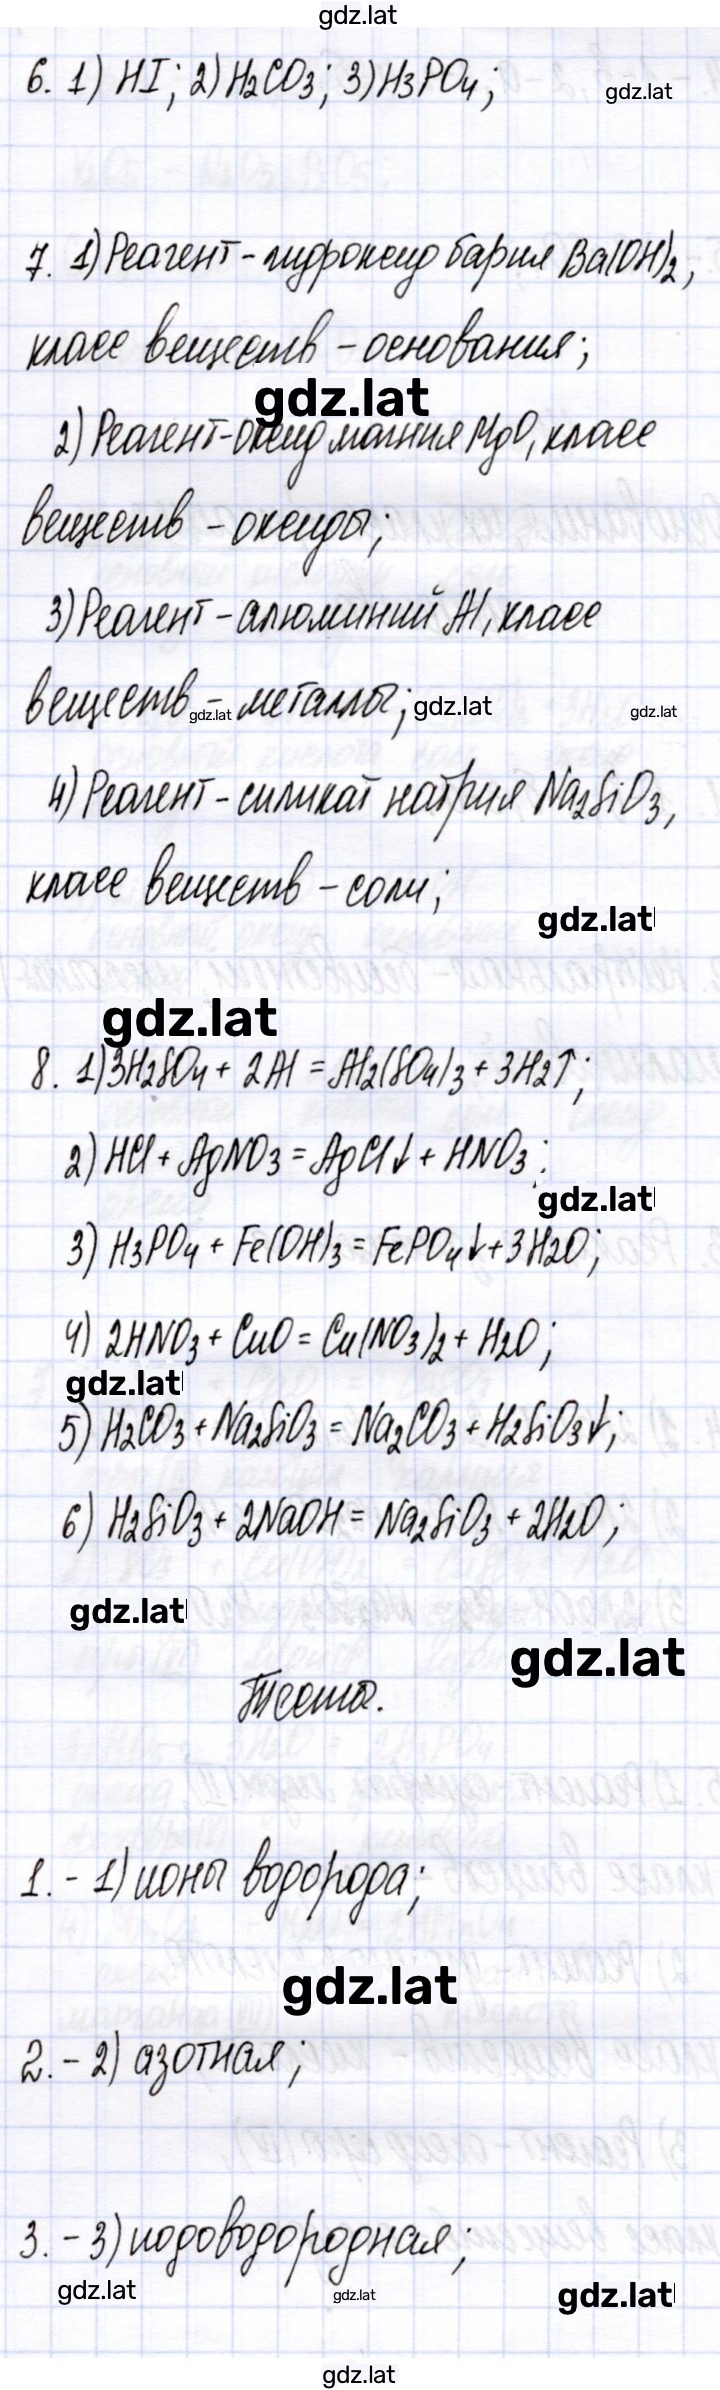 gdz.lat
6. 1) HI; 2) H2CO3; 3) H3PO4;
gdz.lat
7. 1) Реагент - гидроксид бария Ba(OH)2,
класс веществ - основания;
gdz.lat
2) Реагент - оксид магния MgO, класс
веществ - оксиды;
3) Реагент - алюминий Al, класс
веществ - металлы;
gdz.lat gdz.lat gdz.lat
4) Реагент - силикат натрия Na2SiO3,
класс веществ - соли;
gdz.lat
gdz.lat
8. 1) 3H2SO4 + 2Al = Al2(SO4)3 + 3H2↑;
2) HCl + AgNO3 = AgCl↓ + HNO3;
gdz.lat
3) H3PO4 + Fe(OH)3 = FePO4↓ + 3H2O;
4) 2HNO3 + CuO = Cu(NO3)2 + H2O;
gdz.lat
5) H2CO3 + Na2SiO3 = Na2CO3 + H2SiO3↓;
6) H2SiO3 + 2NaOH = Na2SiO3 + 2H2O;
gdz.lat
gdz.lat
Тесты.
1. - 1) ионы водорода;
gdz.lat
2. - 2) азотная;
3. - 3) иодоводородная;
gdz.lat gdz.lat gdz.lat
gdz.lat